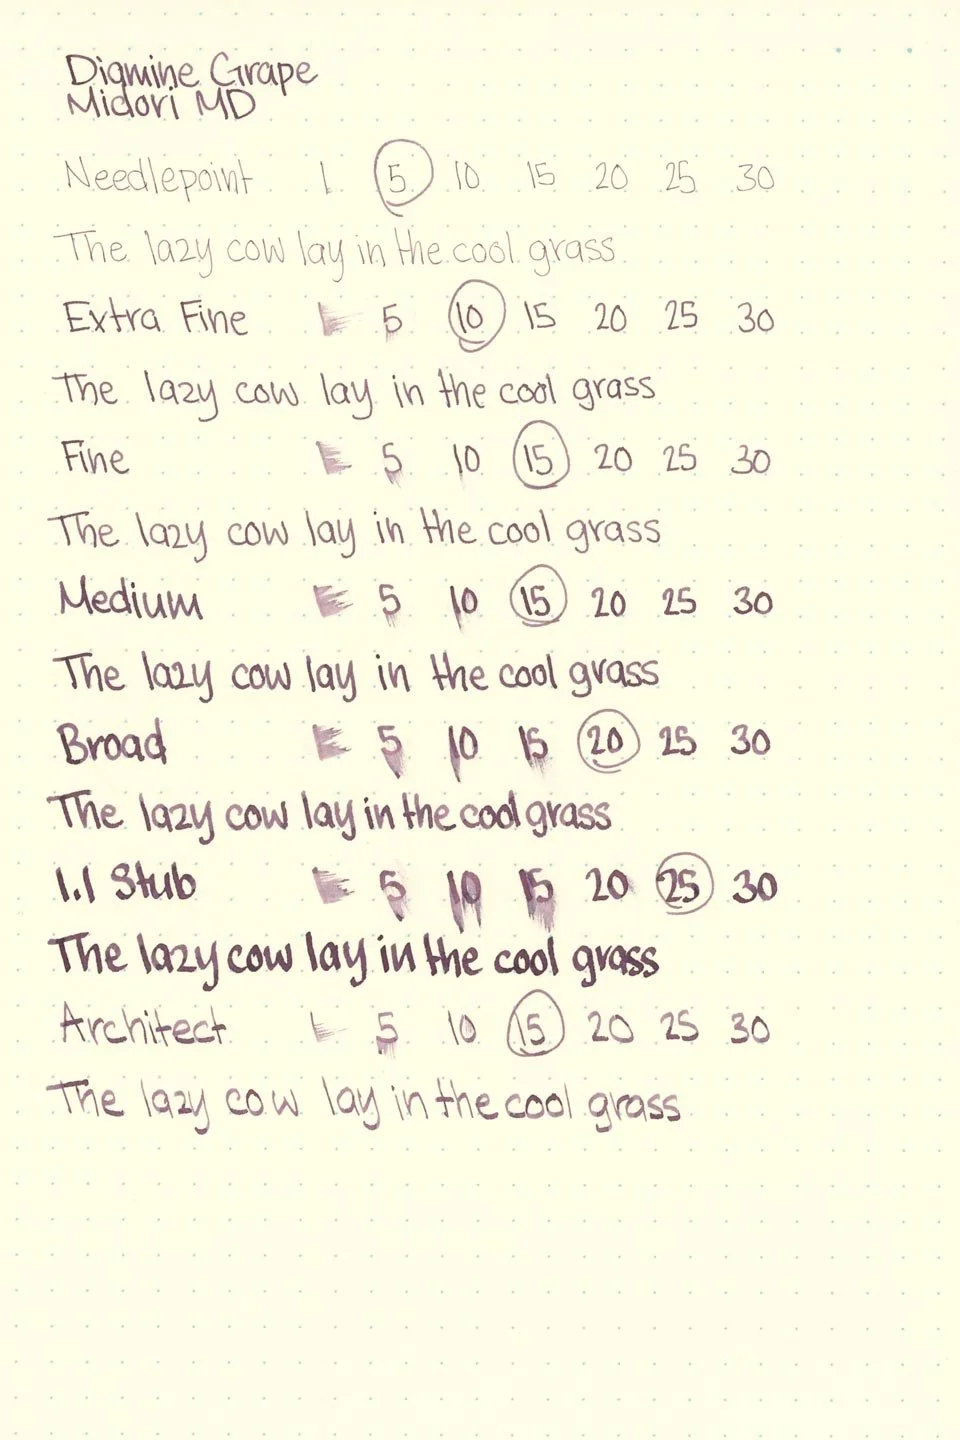 Diamine Grape
Midori MD
Needlepoint 1 5 10 15 20 25 30
The lazy cow lay in the cool grass
Extra Fine 1 5 10 15 20 25 30
The lazy cow lay in the cool grass
Fine 1 5 10 15 20 25 30
The lazy cow lay in the cool grass
Medium 1 5 10 15 20 25 30
The lazy cow lay in the cool grass
Broad 1 5 10 15 20 25 30
The lazy cow lay in the cool grass
1.1 Stub 1 5 10 15 20 25 30
The lazy cow lay in the cool grass
Architect 1 5 10 15 20 25 30
The lazy cow lay in the cool grass